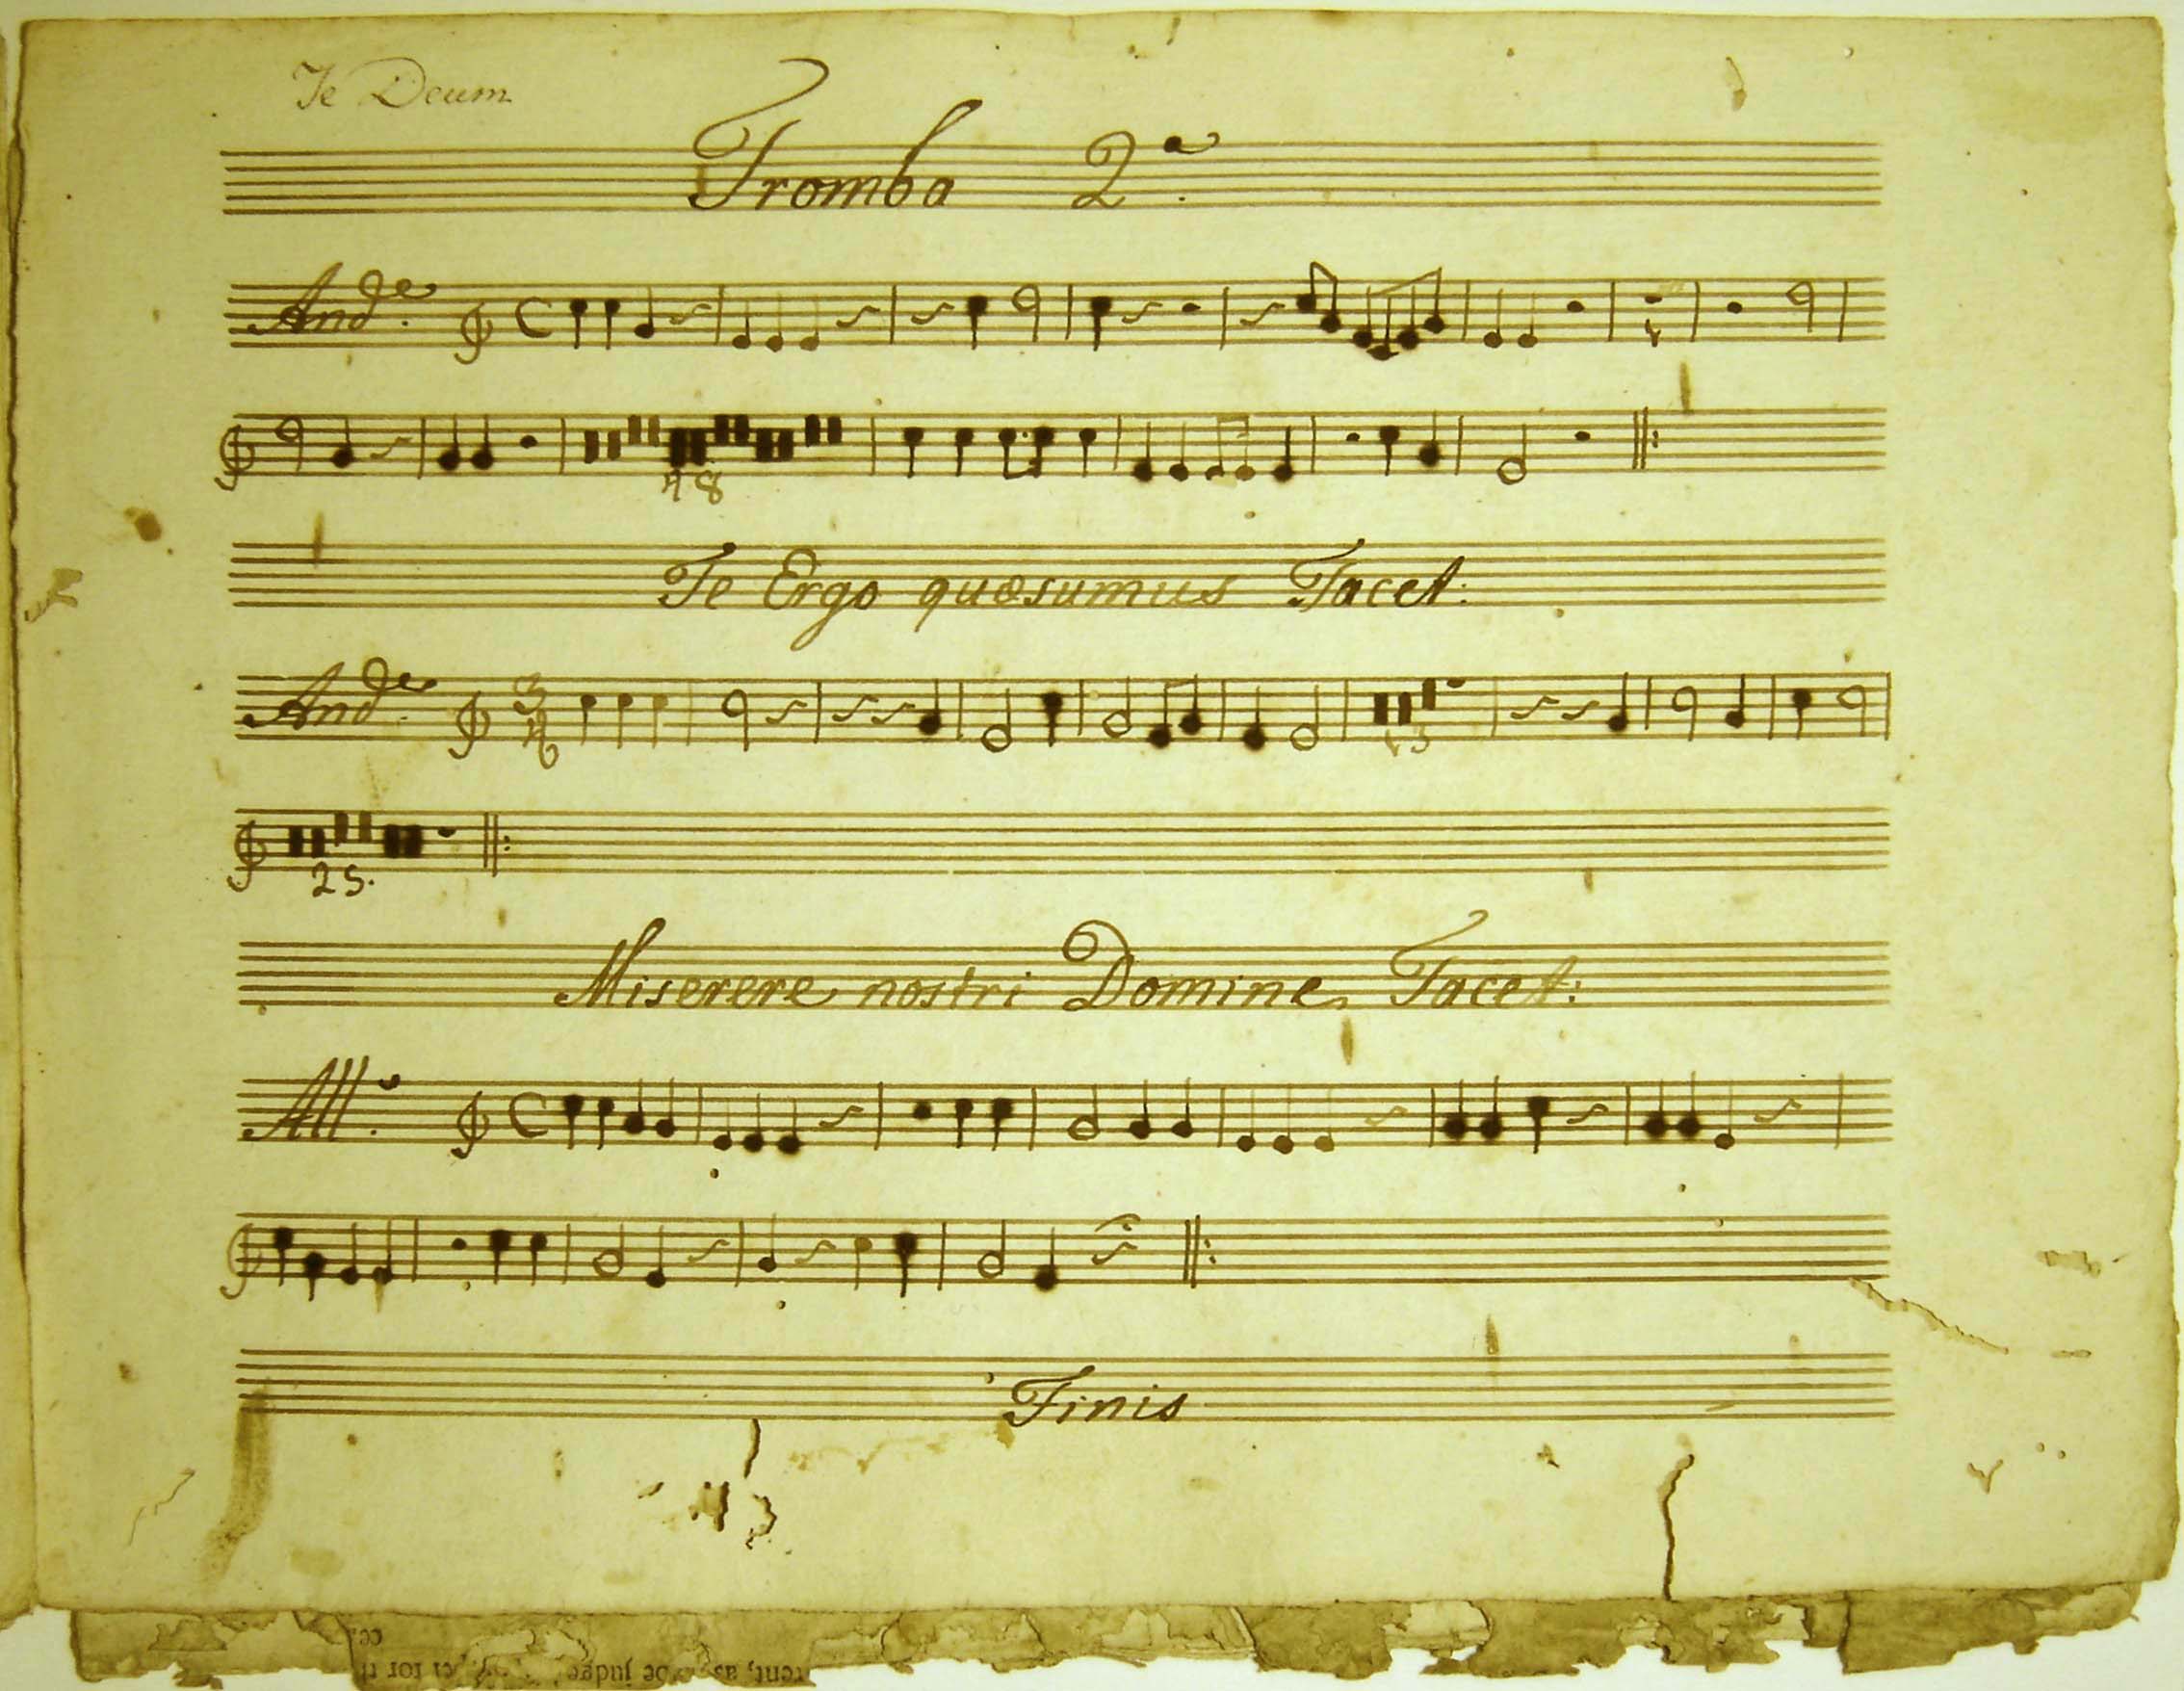 Te Deum
Tromba 2.a
And.e
48
Te Ergo quæsumus Tacet:
And.e 3/4
13
25.
Miserere nostri Domine Tacet:
All.o
Finis